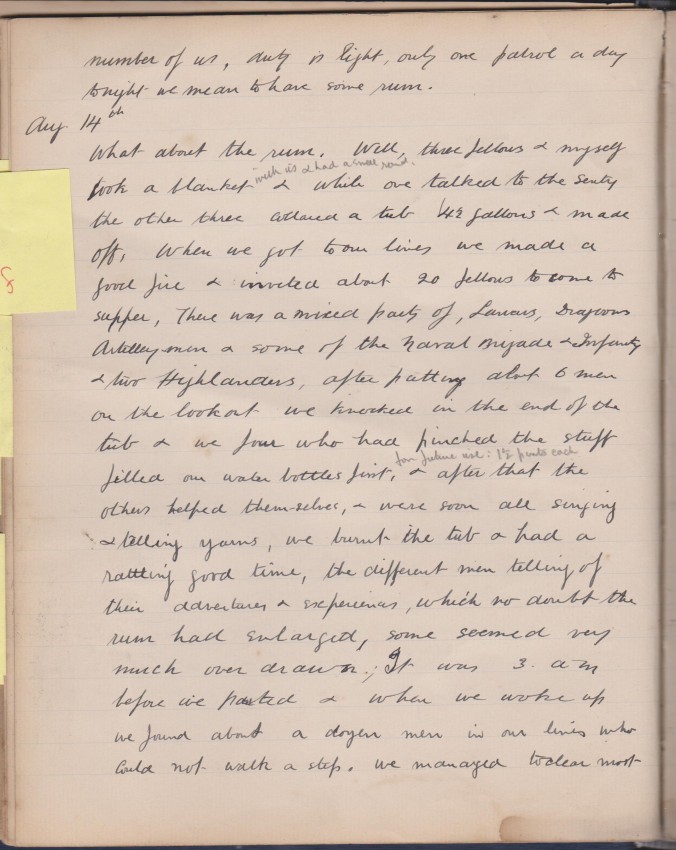 number of us, duty is light, only one patrol a day
tonight we mean to have some rum.
Aug 14th
What about the rum. Well, three fellows & myself
with us & had a small round.
took a blanket & while one talked to the sentry
the other three collared a tub 4½ gallons & made
off, When we got to our lines we made a
good fire & invited about 20 fellows to come to
supper, There was a mixed party of, Lancers, Dragoons
Artillery men & some of the Naval Brigade & Infantry
& two Highlanders, after putting about 6 men
on the lookout we knocked in the end of the
tub & we four who had pinched the stuff
for future use: 1½ pints each
filled our water bottles first, & after that the
others helped them-selves, & were soon all singing
& telling yarns, we burnt the tub & had a
rattling good time, the different men telling of
their adventures & experiences, which no doubt the
rum had enlarged, some seemed very
much over drawn. It was 3. am
before we parted & when we woke up
we found about a dozen men in our lines who
could not walk a step. we managed to clear most
8